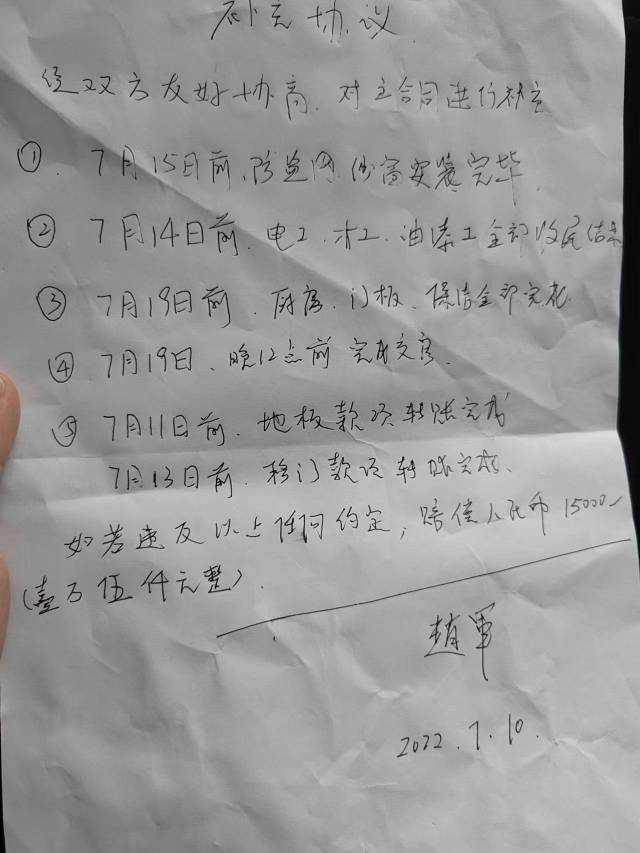 补充协议
经双方友好协商,对主合同进行补充
① 7月15日前,防盗网必需安装完毕.
② 7月14日前,电工、木工、油漆工全部收尾结束
③ 7月19日前,厨房、门板、保洁全部完成
④ 7月19日、晚12点前完成交房.
⑤ 7月11日前,地板款项转账完成
7月13日前,移门款项转账完成、
如若违反以上任何约定,赔偿人民币15000
(壹万伍仟元整).
赵军
2022.7.10.